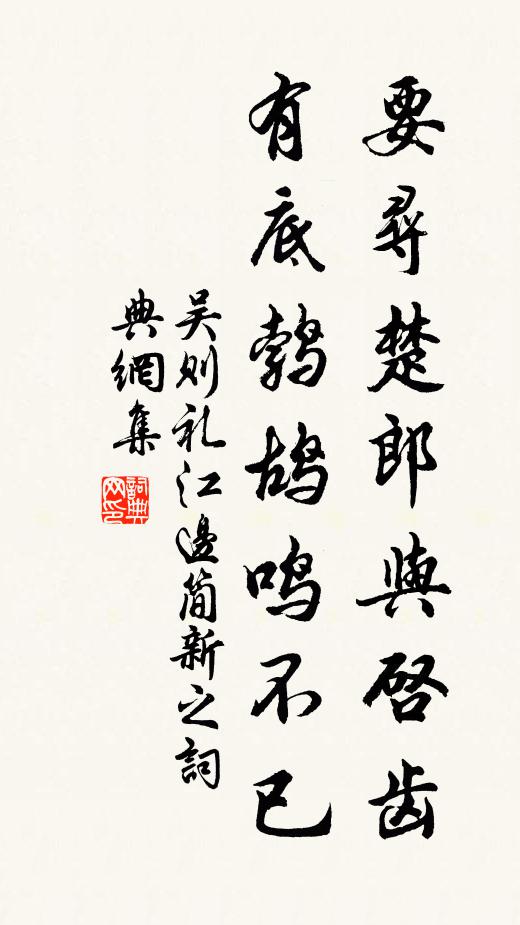 要尋楚郎與啓齒
有底鵓鴣鳴不已
吴则礼江邊簡新之詞
典網集
詞典網印